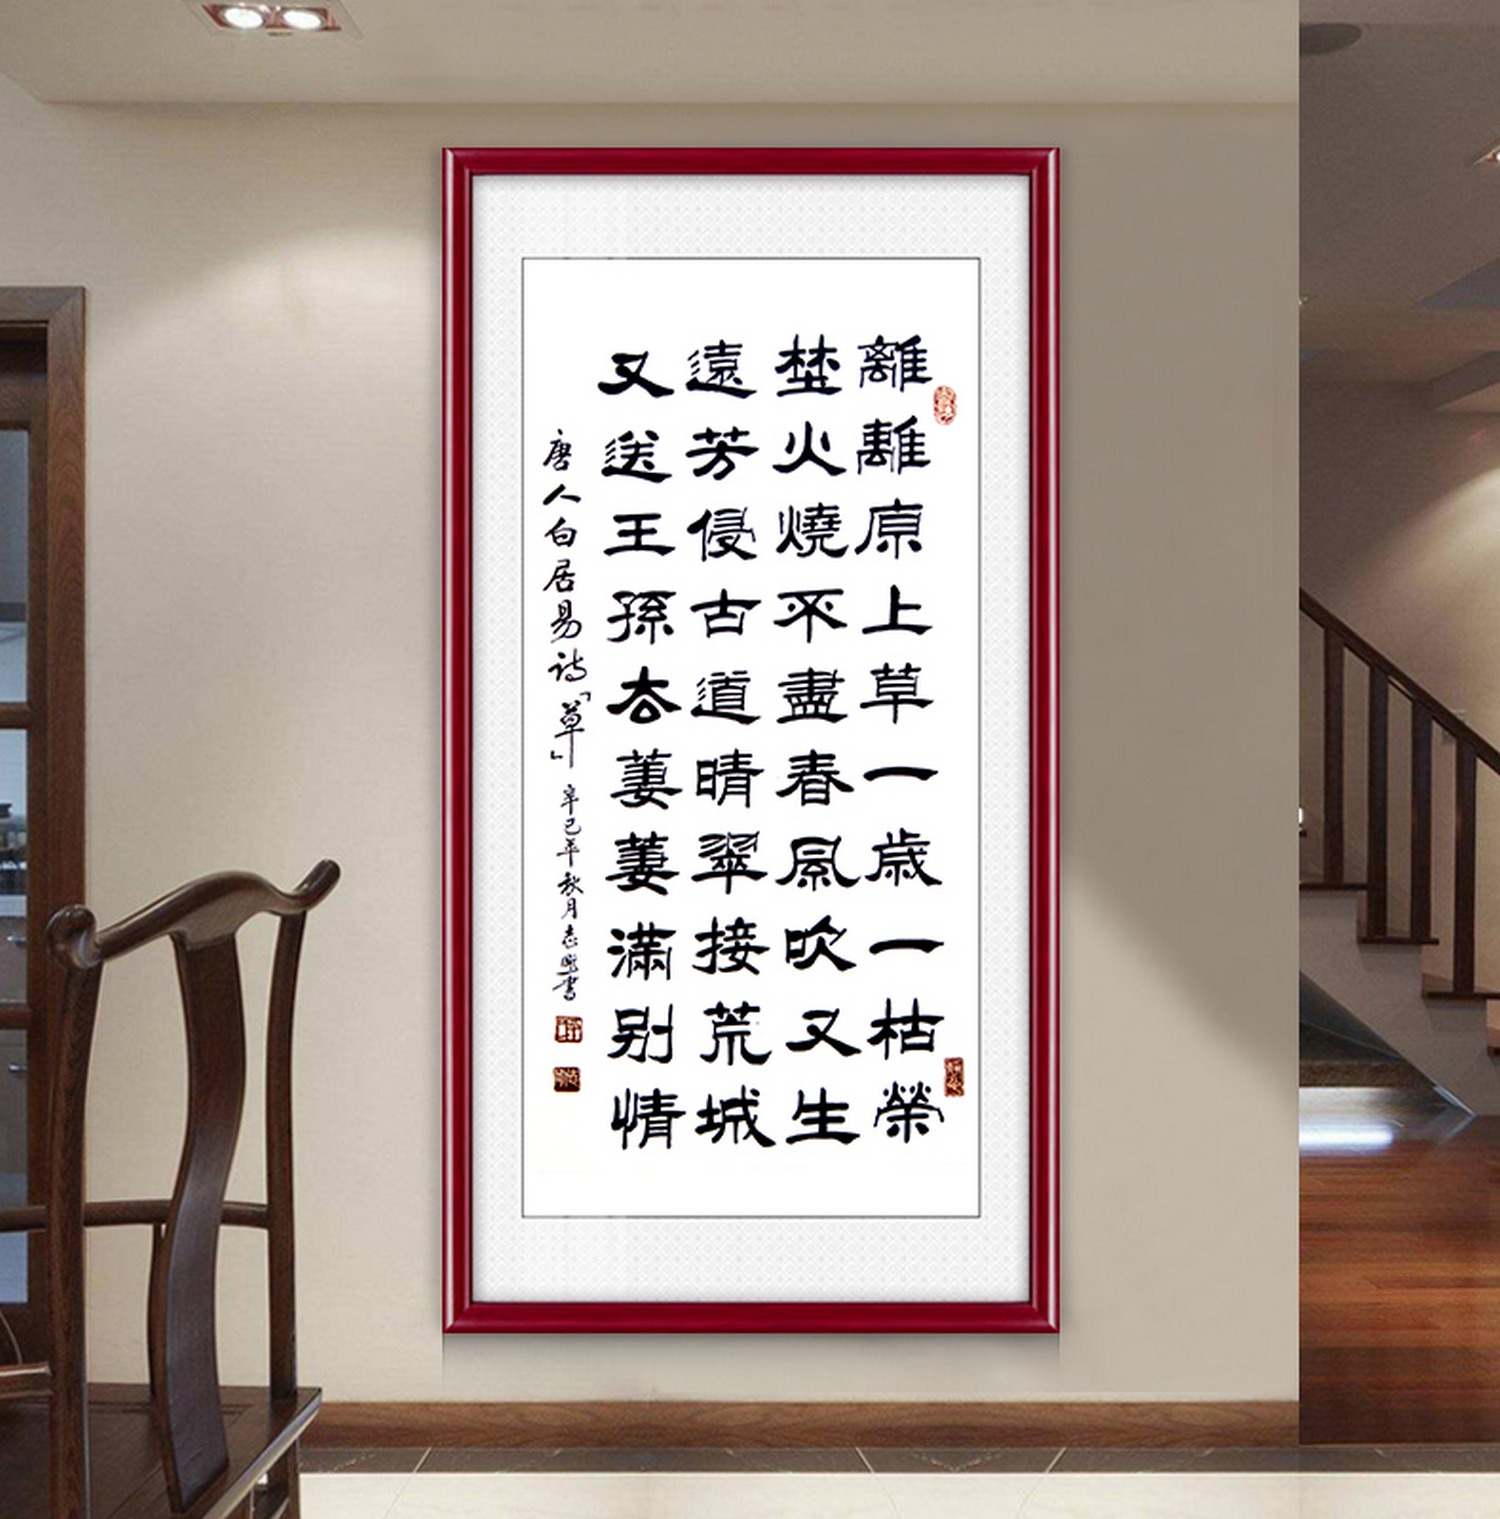 離離原上草一歲一枯榮
埜火燒不盡春風吹又生
遠芳侵古道晴翠接荒城
又送王孫去萋萋滿別情
唐人白居易诗「草」 辛巳年秋月志書